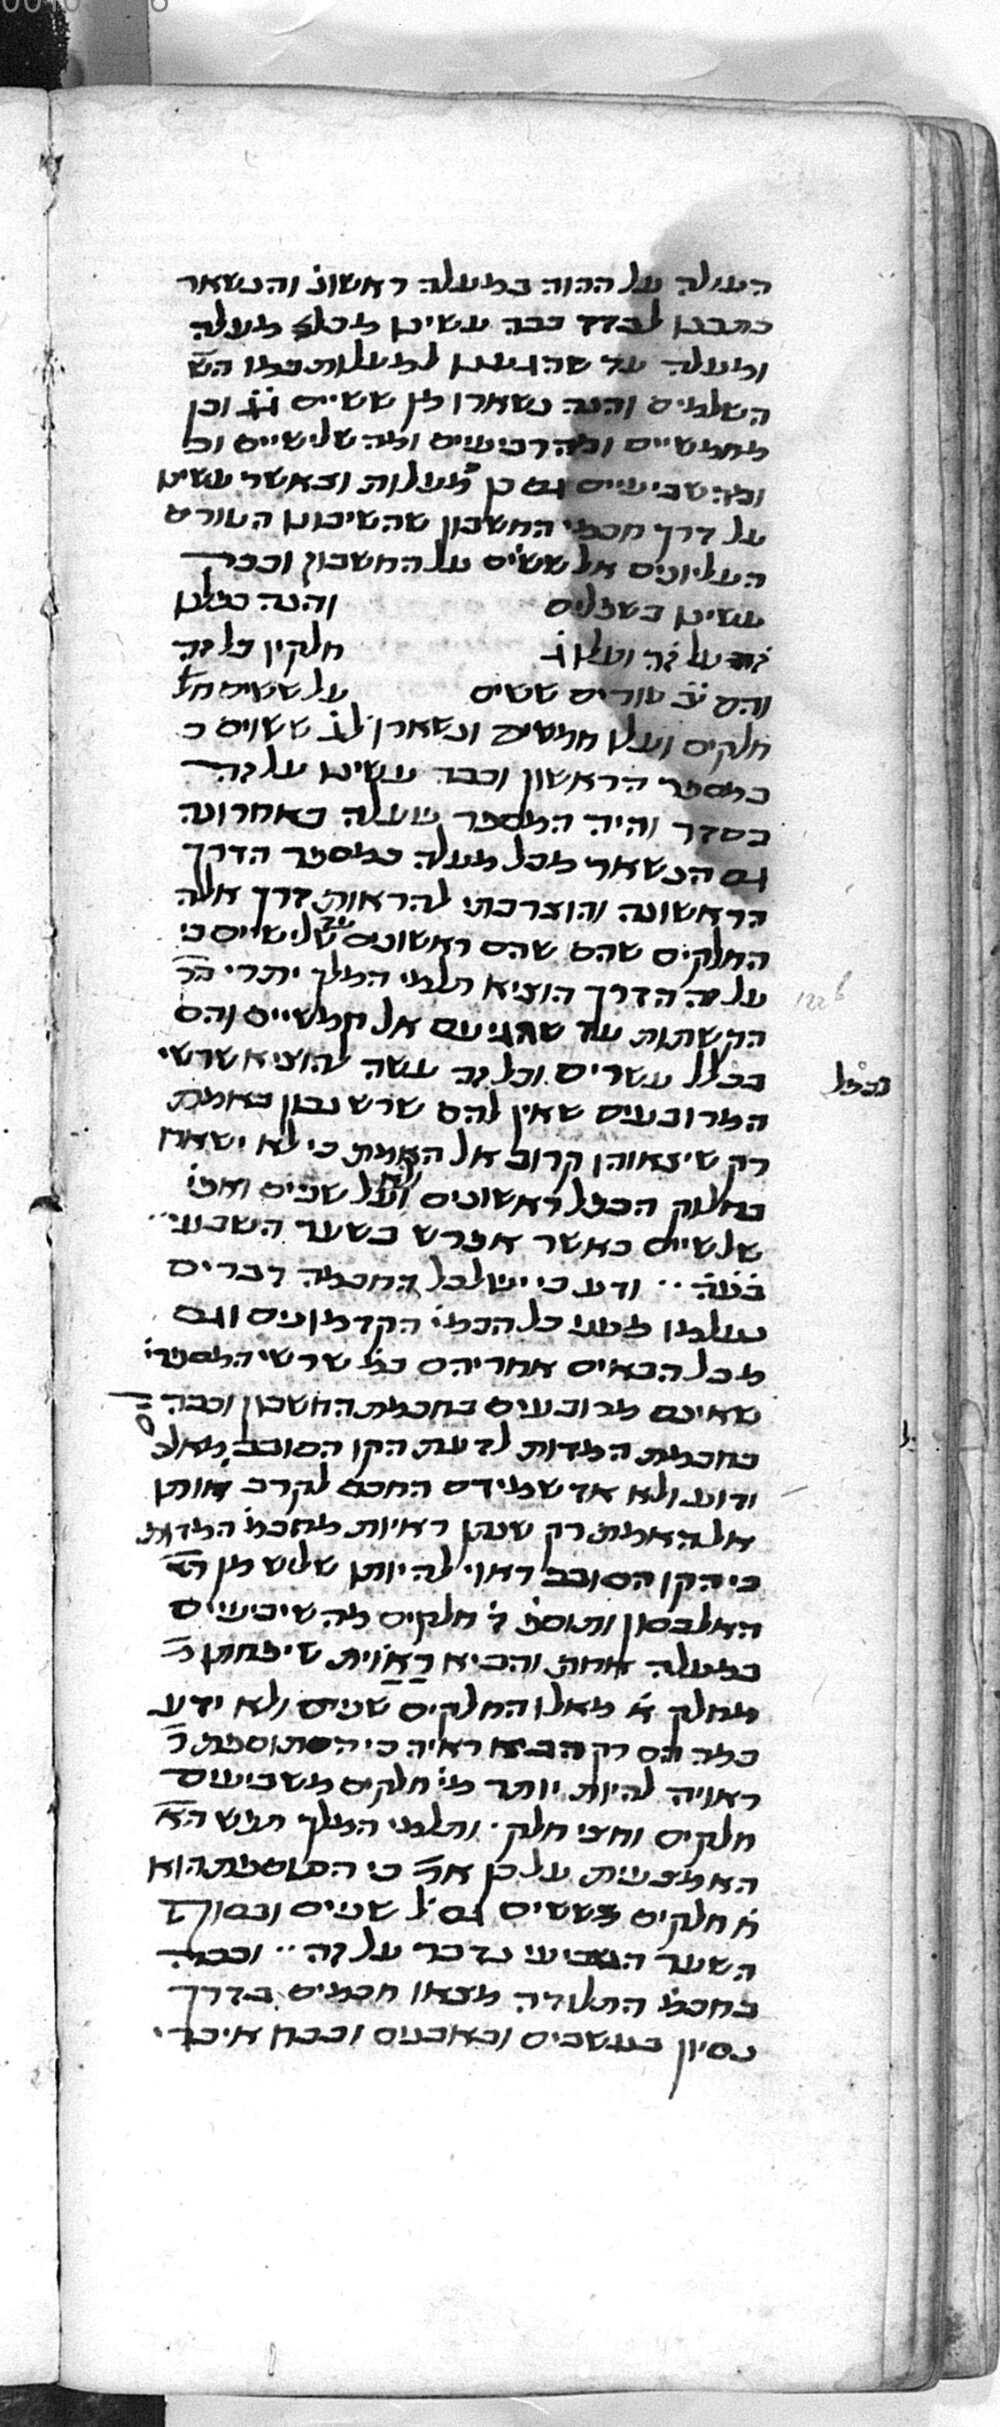 העולה על ההוה במעלה ראשונ׳ והנשאר
כתבנו לבדד ככה עשינו מכל מעלה
ומעלה עד שהגענו למעלות כמו הש׳
השלמים והנה נשארו מן ששיים וכן
מחמשיים ומהרביעיים ומהשלישיים וכ׳
ומהשביעיים גם כן מעלות וכאשר עשינו
על דרך חכמי החשבון שהשיבונו הטורים
העליונים אל ששים על החשבון וככה
עשינו בשפלים והנה כפלנו
זה על זה ועלו חלקין כל זה
והם טורים ששים על ששים חל׳
חלקים ועלו חמשים ונשארו ששיים כ׳
במספר הראשון וככה עשינו על זה
בסדר והיה המספר שעלה באחרונה
גם הנשאר מכל מעלה כמספר הדרך
הראשונה והוצרכתי להראות דרך אלה
החלקים שהם שהם ראשונים עד שלישיים כי
על זה הדרך הוציא תלמי המלך יתרי
הקשתות עד שהגיעם אל חמשיים והם
בכלל עשרים וכל זה עשה להוציא שרשי
בכפל
המרובעים שאין להם שרש נכון באמת
רק שיצאוהו קרוב אל האמת כי לא ישאר
בחלוק הכפל ראשונים ולא שניים ואפי׳
שלשיים כאשר אפרש בשער השביעי
בע״ה ודע כי יש לכל החכמה דברים
נעלמו מעיני כל חכמי הקדמונים וגם
מכל הבאים אחריהם כמ׳ שרשי המספרי׳
שאינם מרובעים בחכמת החשבון וככה
בחכמת המדות לדעת הקו הסובב
ידוע ולא ארשמידס החכם לקרב אותו
אל האמת רק שנתן ראיות מחכמ׳ המדות
כי הקו הסובב ראוי להיותו שלש מן
האלכסון ותוסף חלקים מהשיבעיים
במעלה אחת והביא ראיות שיפחתו
מחלק א׳ מאלו החלקים שניים ולא ידע
כמה הם רק הביא ראיה כי התוספת
ראויה להיות יותר מי׳ חלקים משבעים
חלקים וחצי חלק ותלמי המלך תפש
האמצעית על כן אמ׳ כי התוספת הוא
ח׳ חלקים מששים גם ל׳ שניים ובסוף
השער השביעי נדבר על זה וככה
בחכמ׳ התולדה מצאו חכמים בדרך
נסיון בעשבים ובאבנים ובכח איברי